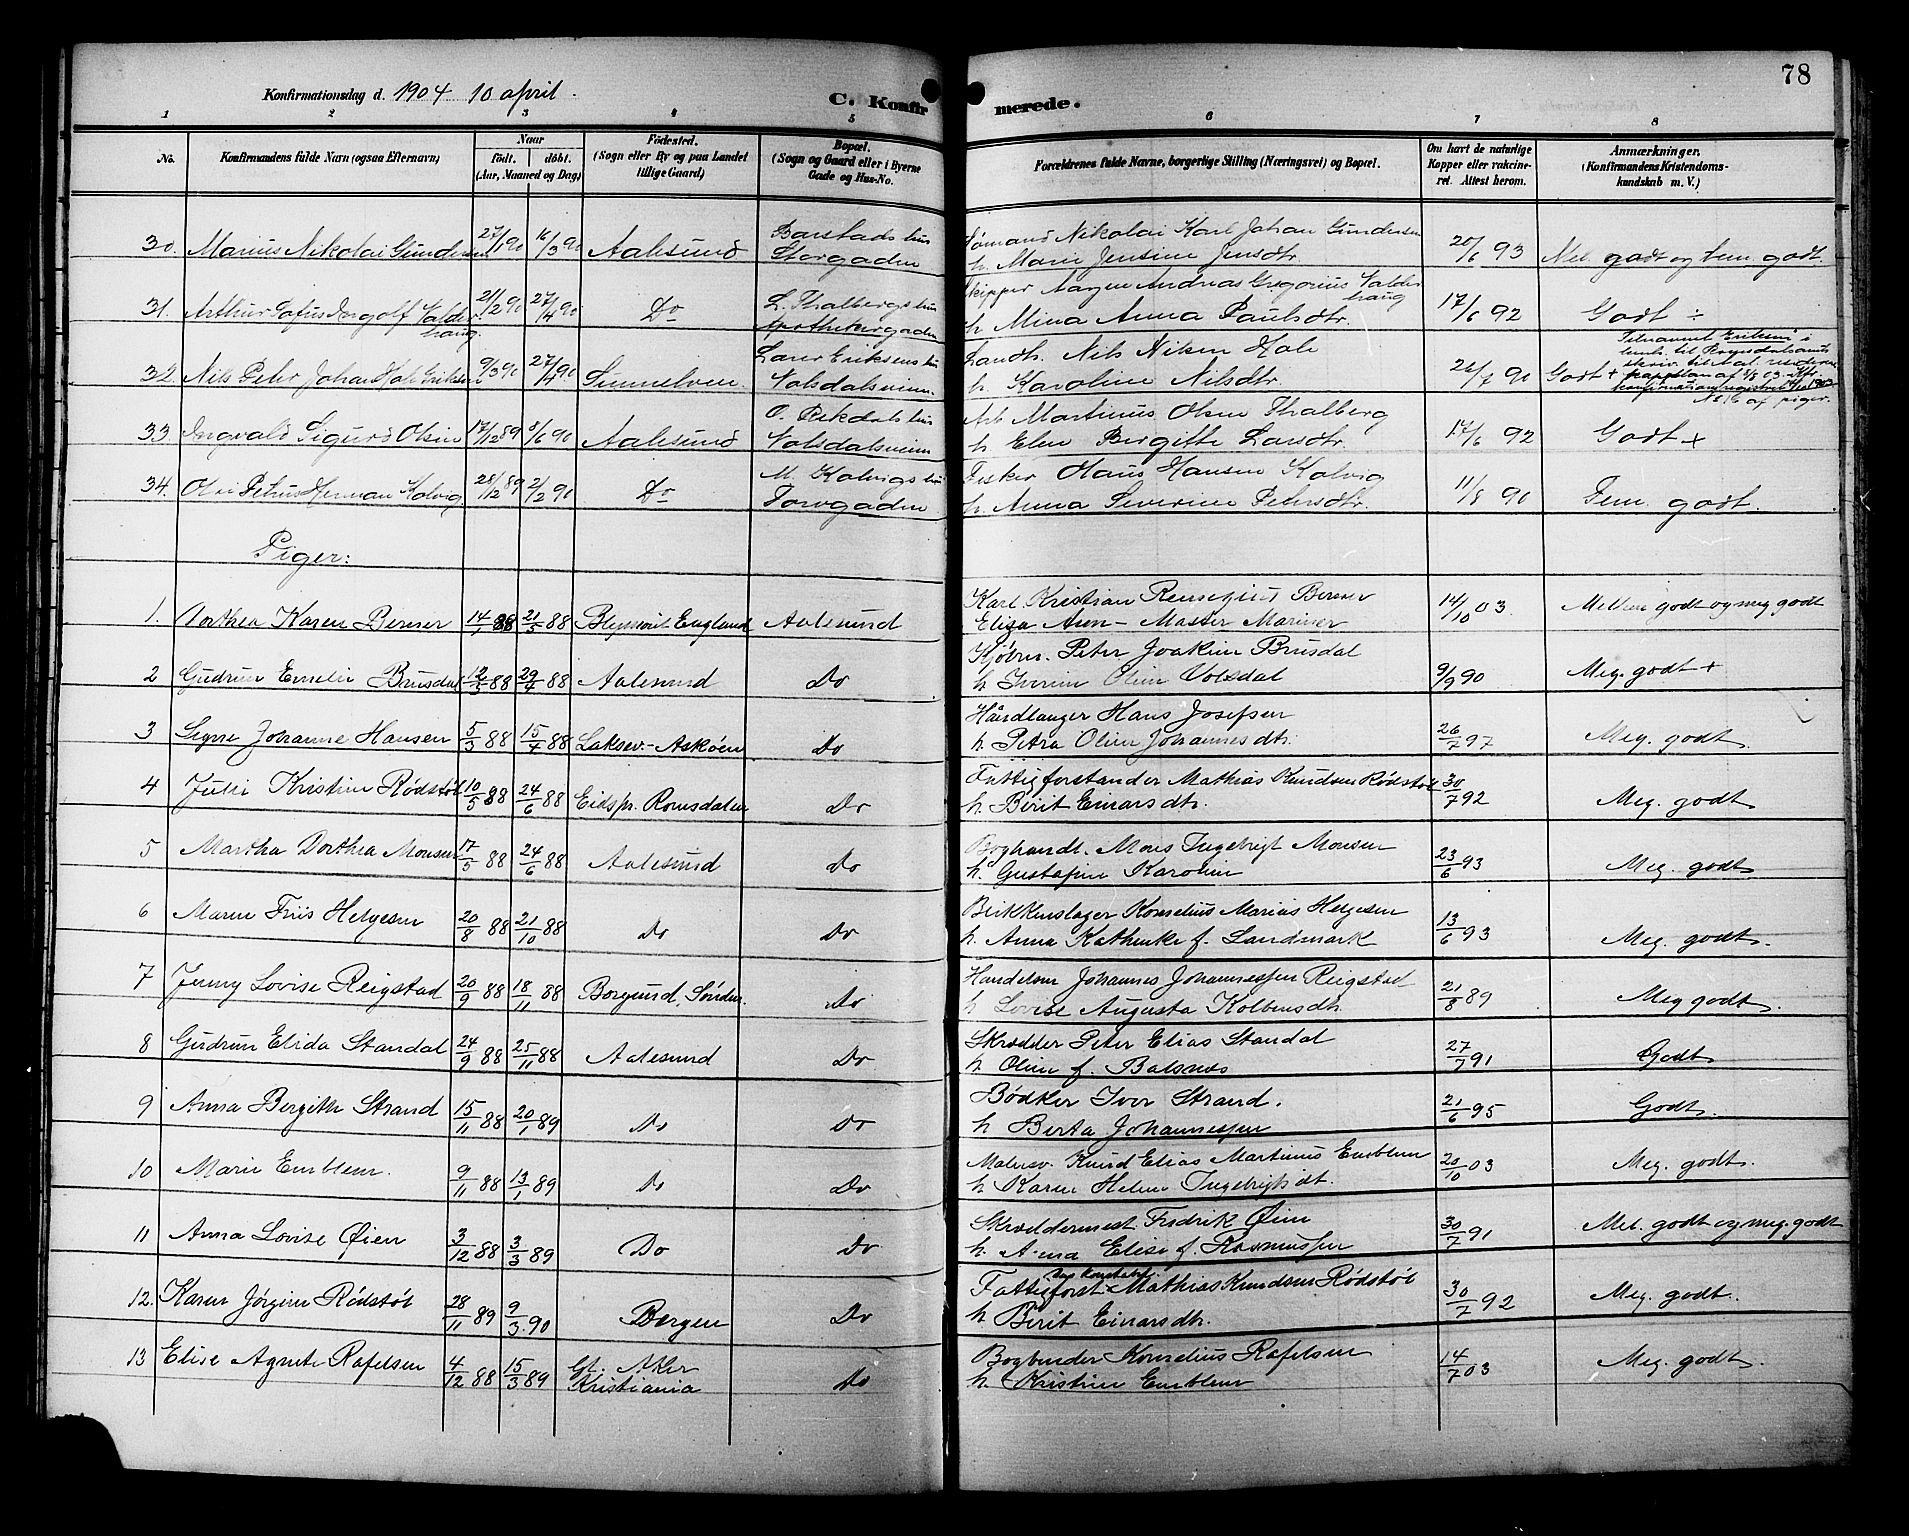 78
Konfirmationsdag d. 1904 10 april.
C. Konfirmerede.
1 2 3 4 5 6 7 8
No. Konfirmandens fulde Navn (ogsaa Efternavn) Naar født. døbt. (Aar, Maaned og Dag) Fødested. (Sogn eller By og paa Landet tillige Gaard) Bopæl. (Sogn og Gaard eller i Byerne Gade og Hus-No. Forældrenes fulde Navne, borgerlige Stilling (Næringsvei) og Bopæl. Om havt de naturlige Kopper eller vakcineret. Attest herom. Anmærkninger. (Konfirmandens Kristendomskundskab m. V.)
30. Marius Nikolai Gundersen 27/1 90 16/3 90 Aalesund Barstads hus Storgaden Sømand Nikolai Karl Johan Gundersen
h. Marie Jensine Jensdtr. 20/6 93 Mel. godt og tem. godt.
31. Arthur Ingolf Valderhaug. 21/2 90 27/4 90 Do L. Thalbergs hus Apothekergaden Skipper Aagen Andreas Gregorius Valderhaug
h. Mina Anna Paulsdtr. 17/6 92 Godt ÷
32. Nils Peter Johan Hole Eriksen 9/3 90 27/4 90 Sunnelven. Lars Eriksens hus Volsdalsveien Landh. Nils Nilsen Hole
h. Karoline Nilsdtr. 26/7 90 Godt + Tilnavnet Eriksen i
No 16 af piger.
33. Ingvald Sigurd Olsen 17/12 89 8/6 90 Aalesund O. hus Volsdalsveien Arb. Martinus Olsen Thalberg
h. Elen Bergitte Larsdtr. 17/6 92 Godt +
34. Olai Petrus Herman Kolvig 28/12 89 2/2 90 Do M. Kolvigs hus Torvgaden Fisker Hans Hansen Kolvig
h. Anna Severine Petersdtr. 11/8 90 Tem. godt.
Piger:
1. Dorthea Karen Berner 14/1 88 21/3 88 England Aalesund Karl Kristian Berner
Eliza Ann - Master Mariner 14/10 03. Mellem godt og meg. godt
2 Gudrun Emelie Brusdal 12/3 88 29/4 88 Aalesund Do Kjøbm. Peter Joakim Brusdal
h. Oline Volsdal 9/9 90 Meg. godt +
3 Signe Johanne Hansen 5/3 88 15/4 88 Laksev.-Askøen Do Håndlanger Hans Josefsen
h. Petra Oline Johannesdtr. 26/7 97 Meg. godt.
4 Julie Kristine Rødstøl 10/5 88 24/6 88 Eidspr. Romsdalen Do Fattigforstander Mathias Knudsen Rødstøl
h. Berit Einarsdtr. 30/7 92 Meg. godt
5 Martha Dorthea Monsen 17/5 88 24/6 88 Aalesund Do Boghandl. Mons Ingebrigt Monsen
h. Gustafine Karoline 23/6 93 Meg. godt
6 Maren Friis Helgesen 20/8 88 21/10 88 Do Do Blikkenslager Kornelius Marius Helgesen
h. Anna Kathinke f. Landmark 13/6 93 Meg. godt.
7 Jenny Lovise Reigstad 20/9 88 18/11 88 Borgund, Søndm. Do Handelsm. Johannes Johannessen Reigstad
h. Lovise Augusta Kolbensdtr. 21/8 89 Meg godt.
8 Gudrun Elida Standal 24/9 88 25/11 88 Aalesund Do Skrædder Peter Elias Standal
h. Oline f. Balsnes 27/7 91 Godt
9 Anna Bergithe Strand 15/11 88 20/1 89 Do Do Bødker Iver Strand.
h. Berta Johannessen 21/6 95 Godt.
10 Marie Emblem. 9/11 88 13/1 89 Do Do Malersv. Knud Elias Martinus Emblem
h. Karen Helene Ingebrigtsdt. 20/10 03 Meg. godt.
11 Anna Lovise Øien 3/12 88 3/3 89 Do Do Skræddermest. Fredrik Øien
h. Anna Elise f. Rasmussen 30/7 91 Mel. godt og meg. godt
12. Karen Jørgine Rødstøl 28/11 89 9/3 90 Bergen Do Fattigforst. Mathias Knudsen Rødstøl
h. Berit Einarsdtr. 30/7 92 Meg. godt.
13 Elise Agnete Rafelsen 4/12 88 15/3 89 Gl. Aker Kristiania Do Bogbinder Kornelius Rafelsen
h. Kristine Emblem 14/7 03 Meg. godt.